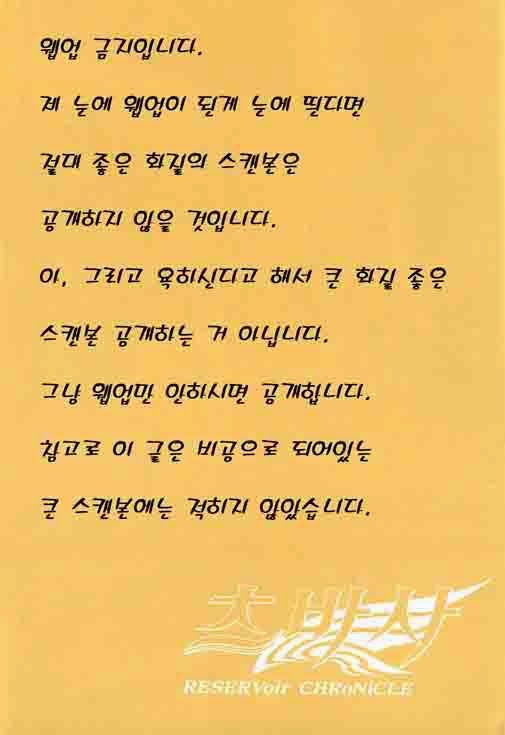 웹업 금지입니다.
제 눈에 웹업이 된게 눈에 띈다면
절대 좋은 화질의 스캔본은
공개하지 않을 것입니다.
아, 그리고 욕하신다고 해서 큰 화질 좋은
스캔본 공개하는 거 아닙니다.
그냥 웹업만 안하시면 공개합니다.
참고로 이 글은 비공으로 되어있는
큰 스캔본에는 적히지 않았습니다.
츠바사
RESERVoir CHRoNiCLE